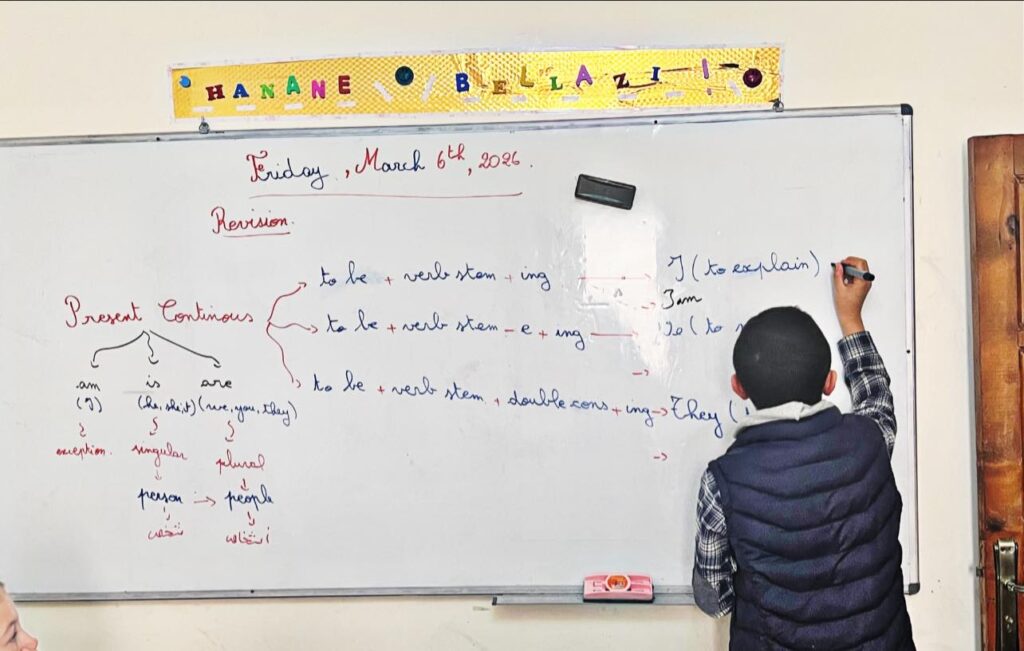 HANANE BELLAZI !
Friday, March 6th, 2026.
Revision.
to be + verb stem + ing → I (to explain)
→ I am
Present Continous
to be + verb stem - e + ing → (to
→
am is are
to be + verb stem + double cons + ing → They (
(I) (he, she, it) (we, you, they)
exception. singular plural
→
person → people
شخص أشخاص